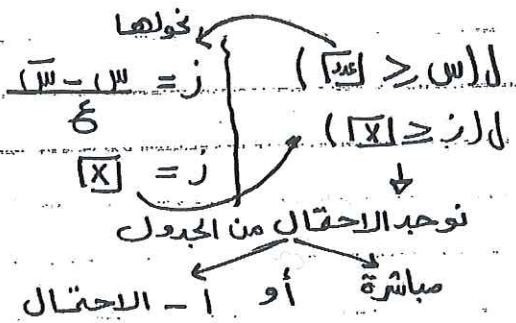 نحولها
ل(س ≥ عدد)
ز = س - س̄ / ع
ل(ز ≥ X)
ز = X
نوجد الاحتمال من الجدول
مباشرة أو ١ - الاحتمال